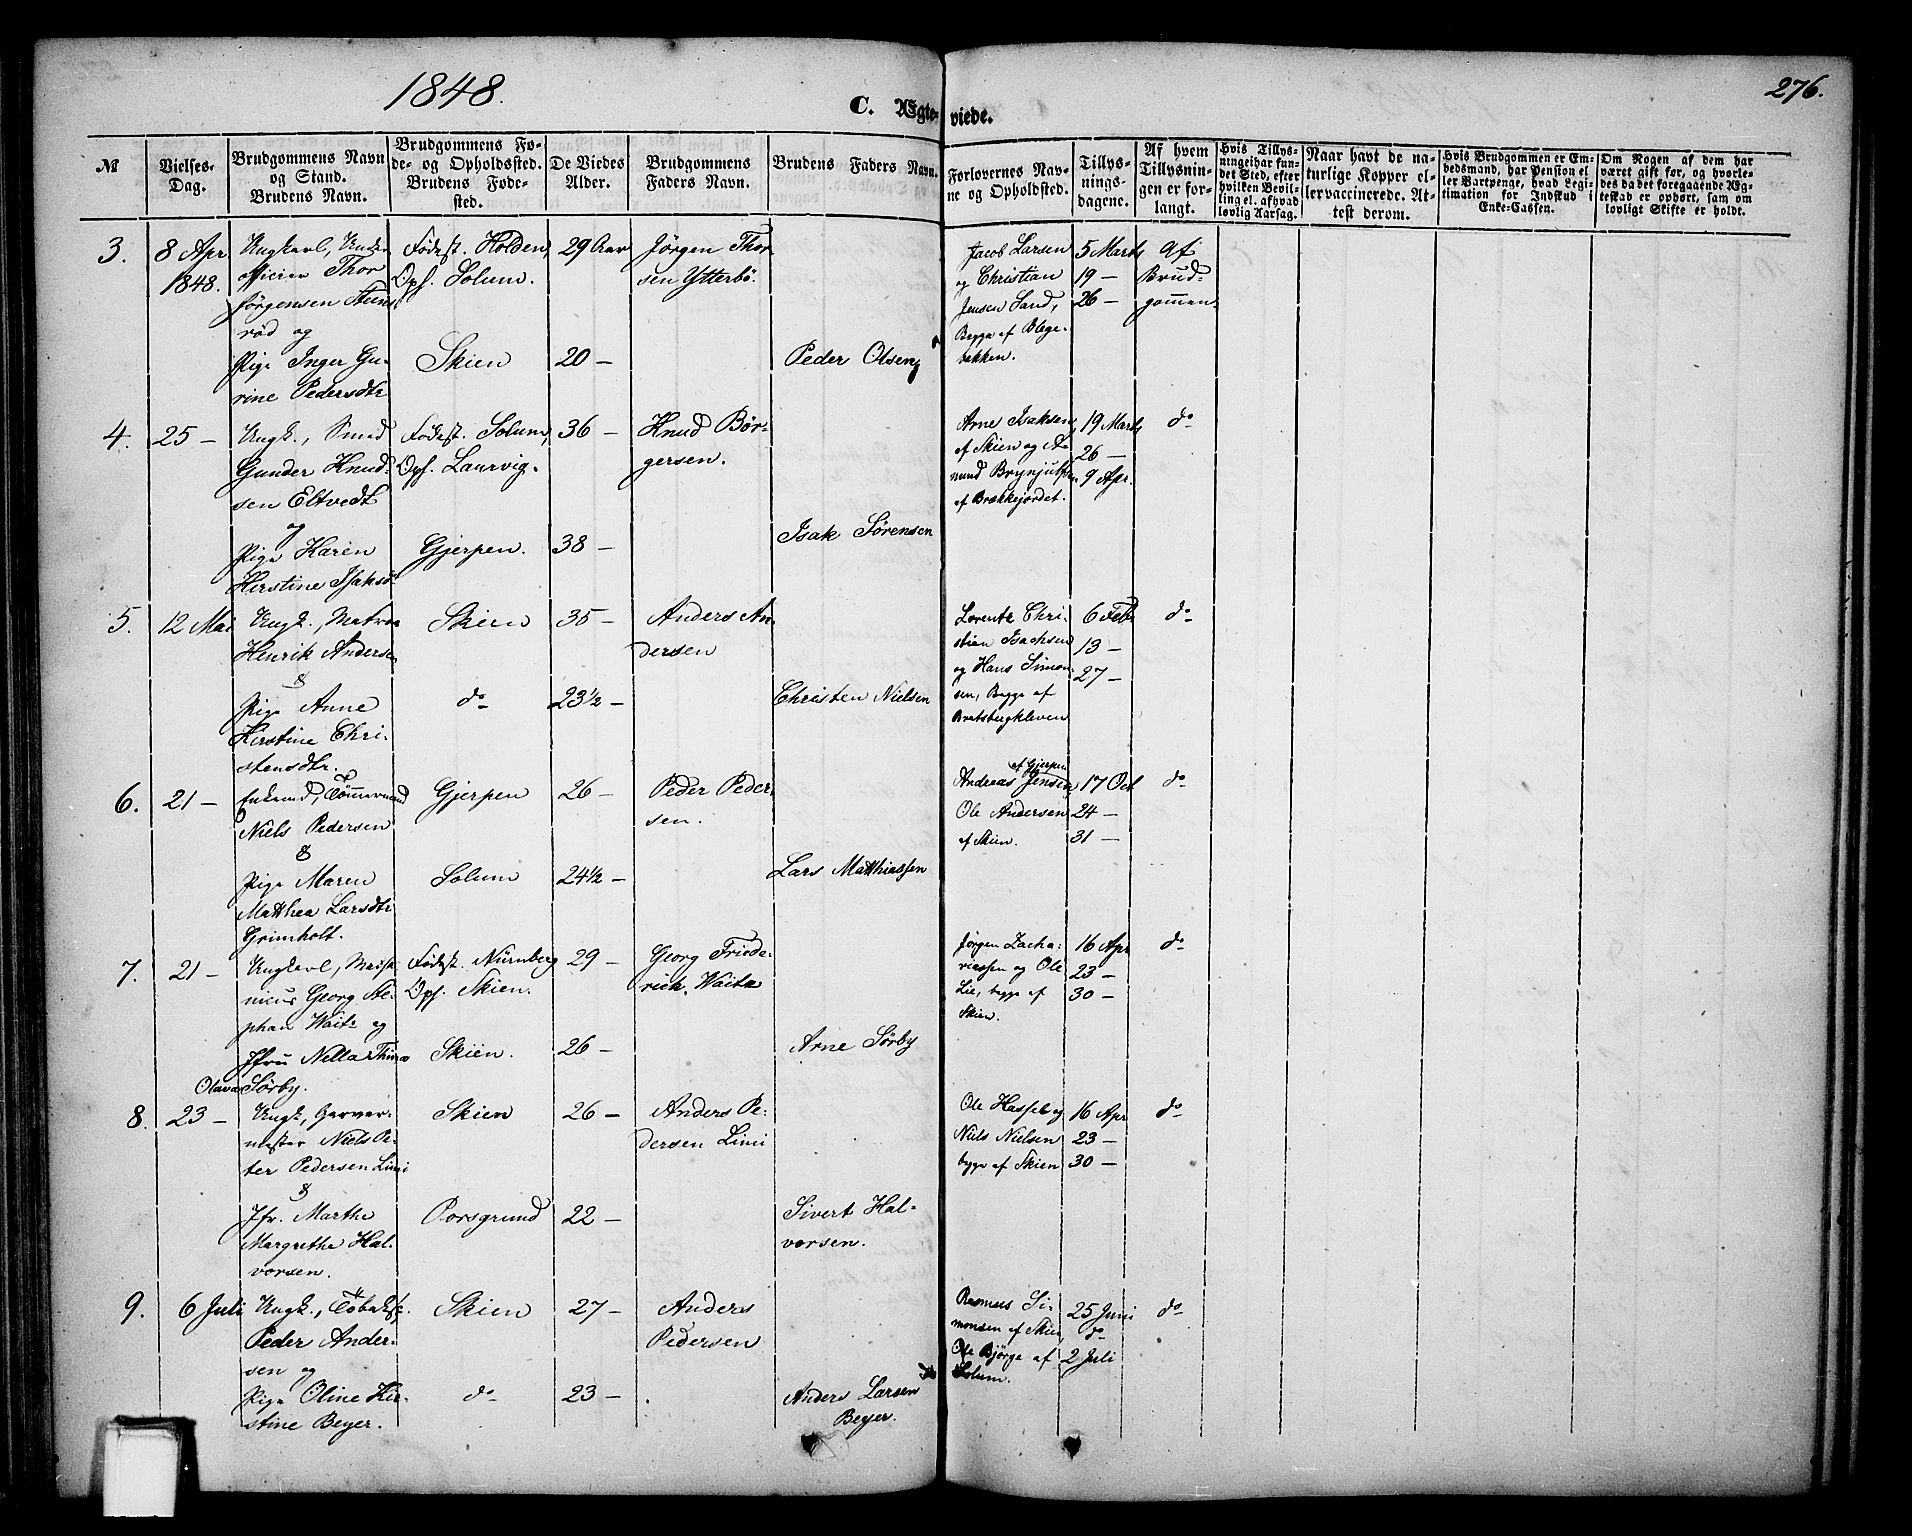 1848.
C. Ægteviede.
276.
№
Vielses-
Dag.
Brudgommens Navn
og Stand.
Brudens Navn.
Brudgommens Fø-
de- og Opholdssted.
Brudens Føde-
sted.
De Viedes
Alder.
Brudgommens
Faders Navn.
Brudens Faders Navn.
Forlovernes Nav-
ne og Opholdsted.
Tillys-
nings-
dagene.
Af hvem
Tillysnin-
gen er for-
langt.
Hvis Tillys-
ningei har fun-
det Sted, efter
hvilken Bevil-
ling el. af hvad
lovlig Aarsag.
Naar havt de na-
turlige Kopper el-
ler vaccinerede. At-
test derom.
Hvis Brudgommen er Em-
bedsmand, har Pension el-
ler Vartpenge, hvad Legi-
timation for Indskud i
Enke-Cassen.
Om Nogen af dem har
været gift før, og hvorle-
des da det foregaaende Æg-
teskab er ophørt, sam om
lovligt Skifte er holdt.
3.
8 Apr
1848.
Ungkarl, Under
officier Thor
Jörgensen
röd og
Pige Inger Gu-
rine Pedersdtr
Födest. Holden,
Oph. Solum.
Skien
29 Aar
20 —
Jörgen Thor-
sen Ytterbö.
Peder Olsen
Jacob Larsen
og Christian
Jensen Sand,
Begge af Blege-
bakken.
5 Marts
19 —
26 —
Af
Brud-
gommen
4.
25 —
Ungk., Smed
Gunder Knud-
sen Eltvedt
og
Pige Karen
Kirstine Isaksd
Födest. Solum,
Oph. Laurvig.
Gjerpen.
36 —
38 —
Knud Bör-
gersen.
Isak Sørensen
Arne Isaksen
af Skien og A-
mund Brynjulfsen
af Brækkejordet.
19 Marts
26 —
9 Apr.
do
5.
12 Mai
Ungk., Matros
Henrik Andersen
&
Pige Anne
Kirstine Chri-
stensdtr.
Skien
do
35 —
23½ —
Anders An-
dersen
Christen Nielsen
Lorentz Chri-
stian Isachsen
og Hans Simon-
sen, Begge af
Bratsbergkleven
6 Feb
13 —
27 —
do
6.
21 —
Enkemd, Tömmermand
Niels Pedersen
&
Pige Maren
Matthea Larsdtr
Grimholt.
Gjerpen
Solum
26 —
24½ —
Peder Peder-
sen.
Lars Matthiassen
af Gjerpen
Andreas Jensen,
Ole Andersen
af Skien.
17 Oct
24 —
31 —
do
7.
21 —
Ungkarl, Musi-
nicus Georg Ste-
phan Waitz og
Jfru Nella Thina
Olava Sörby.
Födest. Nürnberg
Oph. Skien.
Skien.
29 —
26 —
Georg Friede-
rich Waitz
Arne Sørby
Jörgen Zacha-
riassen og Ole
Lie, begge af
Skien.
16 Apr
23 —
30 —
do
8.
23 —
Ungk, Garver-
mester Niels Pe-
ter Pedersen Limi
&
Jfr. Marthe
Margrethe Hal-
vorsen.
Skien
Porsgrund
26 —
22 —
Anders Pe-
dersen Limi
Sivert Hal-
vorsen.
Ole Hasselb og
Niels Nielsen
begge af Skien
16 Apr
23 —
30 —
do
9.
6 Juli
Ungk., Tobaksf.
Peder Ander-
sen og
Pige Oline Kir-
stine Beyer.
Skien
do
27 —
23 —
Anders
Pedersen
Anders Larsen
Beyer.
Rasmus Si-
monsen af Skien,
Ole Bjørge af
Solum.
25 Juni
do
2 Juli
do